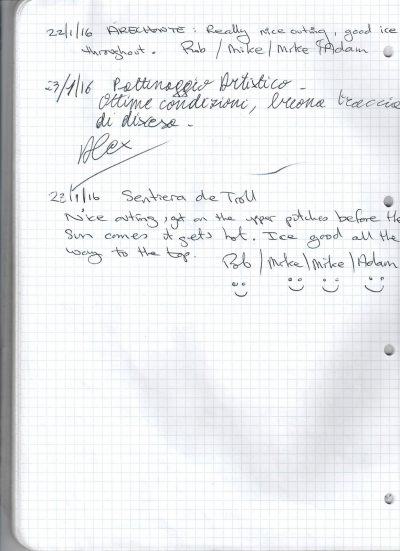 22/1/16 ARECHANTE: Really nice outing, good ice
throughout. Rob / Mike / Mike & Adam
23/1/16 Pattinaggio Artistico -
Ottime condizioni, buona traccia
di discesa -
Alex
23/1/16 Sentiera de Troll
Nice outing, get on the upper pitches before the
Sun comes it gets hot. Ice good all the
way to the top. Rob / Mike / Mike / Adam